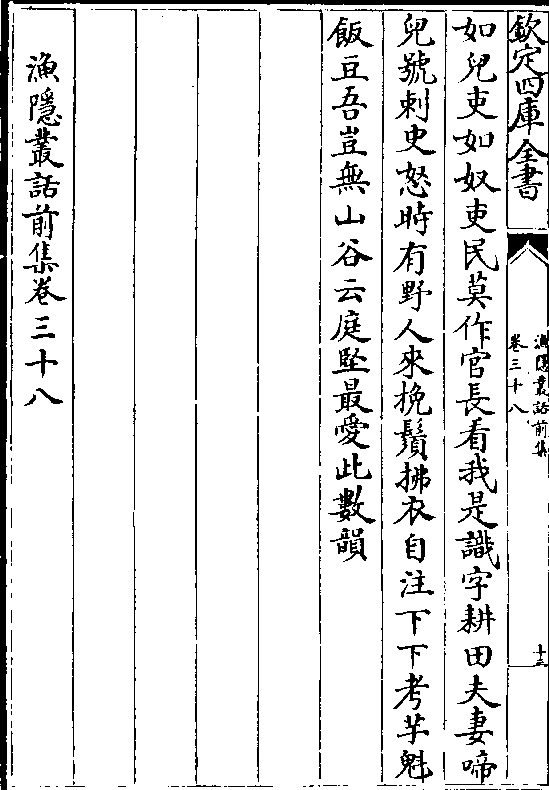 欽定四庫全書
漁隱叢話前集
卷三十八
十三
如兒吏如奴吏民莫作官長看我是識字耕田夫妻啼
兒號刺史怒時有野人來挽鬚拂衣自注下下考芋魁
飯豆吾豈無山谷云庭堅最愛此數韻
漁隱叢話前集卷三十八